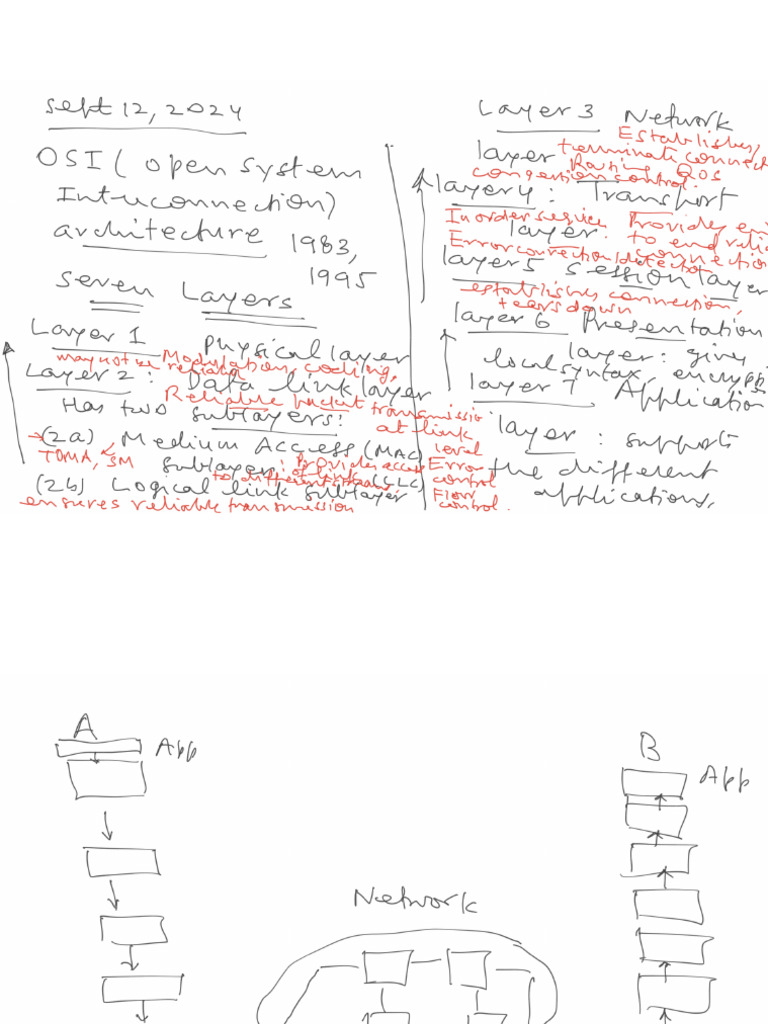 Sept 12, 2024
OSI ( open system
Interconnection)
architecture 1983,
1995
Seven Layers
Layer 1 physical layer
may not be reliable Modulation, coding,
Layer 2: Data link layer
Reliable packet transmissio
at link
level
Has two sublayers:
(2a) Medium Access (MAC)
TDMA, SM sublayer: Provides access
to different
of link
(2b) Logical link sublayer (LLC)
ensures reliable transmission
Error
control
Flow
control
Layer 3 Network
layer
Establishes,
terminate connect
Routing QOS
congestion control.
layer 4: Transport
layer.
In order service Provides en
to end reli
connection
Error correction/detection
layer 5 session layer
establishes connection,
tears down
layer 6 Presentation
layer: gives
local syntax, encryp
layer 7 Application
layer: supports
the different
applications.
A
App
B
App
Network